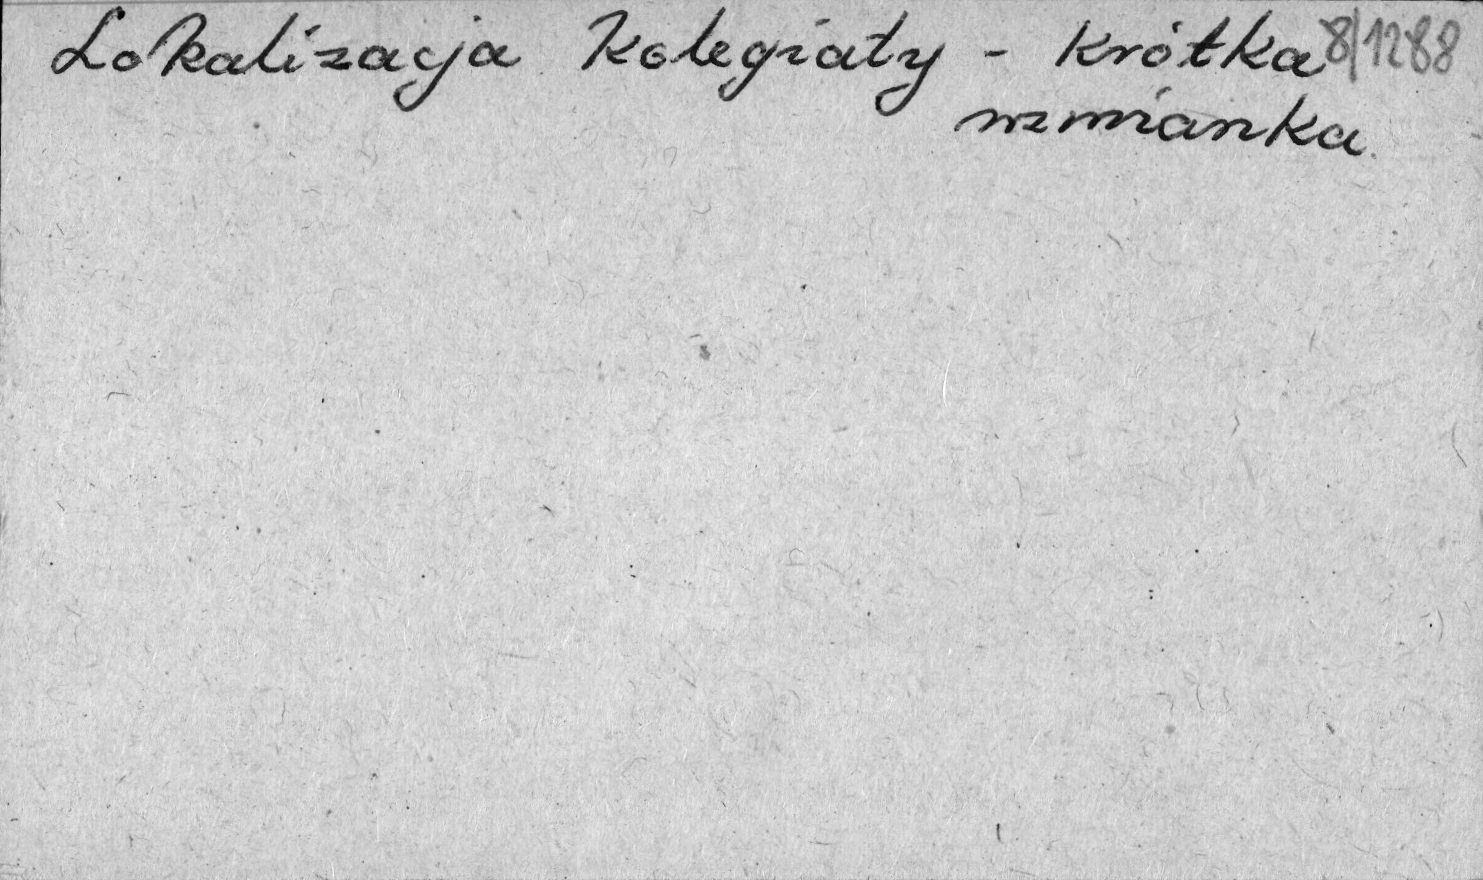 Lokalizacja Kolegiaty - krótka 8/1288
wzmianka.